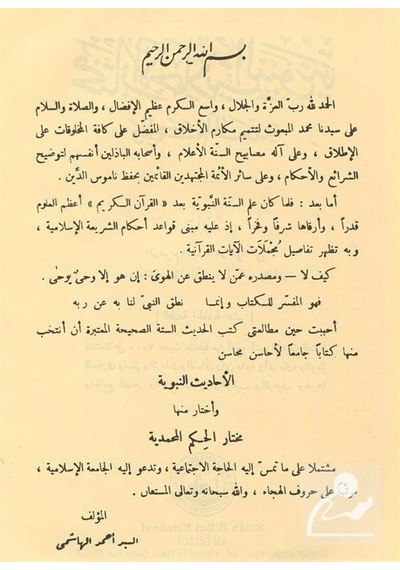 بسم الله الرحمن الرحيم
الحمد لله ربّ العزّة والجلال ، واسع الكرم عظيم الإفضال ، والصلاة والسلام
على سيدنا محمد المبعوث لتتميم مكارم الأخلاق ، المفضّل على كافة المخلوقات على
الإطلاق ، وعلى آله مصابيح السنّة الأعلام ، وأصحابه الباذلين أنفسهم لتوضيح
الشرائع والأحكام ، وعلى سائر الأئمة المجتهدين القائمين بحفظ ناموس الدّين .
أما بعد : فلما كان علم السنة النّبويّة بعد « القرآن الكريم » أعظم العلوم
قدراً ، وأرقاها شرفاً وفخراً ، إذ عليه مبنى قواعد أحكام الشريعة الإسلامية ،
وبه تظهر تفاصيل مُجمَلات الآيات القرآنية .
كيف لا — ومصدره عمّن لا ينطق عن الهوى : إن هو إلا وحيٌ يوحى .
فهو المفسّر للكتاب وإنما نطق النبيّ لنا به عن ربه
أحببت حين مطالعتي كتب الحديث الستة الصحيحة المعتبرة أن أنتخب
منها كتاباً جامعاً لأحاسن محاسن
الأحاديث النبوية
وأختار منها
مختار الحِكم المحمدية
مشتملا على ما تمسّ إليه الحاجة الاجتماعية ، وتدعو إليه الجامعة الإسلامية ،
مرتّباً على حروف الهجاء ، والله سبحانه وتعالى المستعان .
المؤلف
السيد أحمد الهاشمى